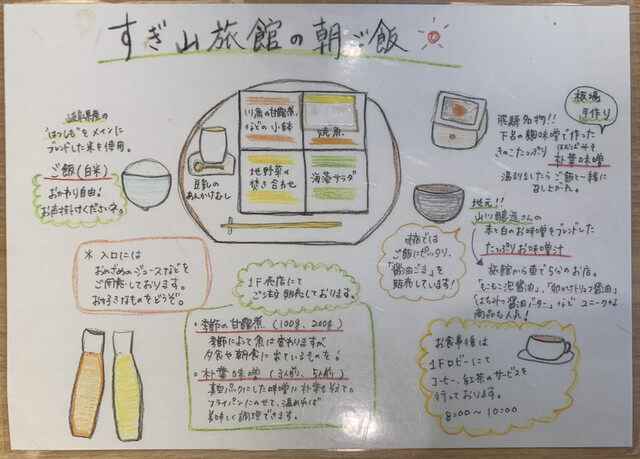 すぎ山旅館の朝ご飯
岐阜県産の
"はつしも"をメインに
ブレンドした米を使用。
ご飯(白米)
おかわり自由!
お声掛けくださいネ。
豆乳の
あんかけむし
川魚の甘露煮
などの小鉢
焼魚
地野菜の
焚き合わせ
海藻サラダ
板場
手作り
飛騨名物!!
下呂の麹味噌で作った
きのこたっぷり
朴葉味噌
温まりましたらご飯と一緒に
召し上がれ。
地元!!
山川醸造さんの
赤と白のお味噌をブレンドした
たっぷりお味噌汁
旅館から車で5分のお店。
「もこもこ泡醤油」、「卵かけトリュフ醤油」
「はちみつ醤油バター」など ユニークな
商品も人気!
売店では
ご飯にピッタリ、
「醤油ごま」を
販売しています!
※入口には
おめざめのジュースなどを
ご用意しております。
お好きなものをどうぞ。
1F売店にて
ご注文・販売しております。
・季節の甘露煮(100g、200g)
季節によって魚は変わりますが
夕食や朝食に出ているものを!
・朴葉味噌(3人前、5人前)
真空パックにした味噌に朴葉を役て。
フライパンにのせて、温めれば
美味しく調理できます。
お食事後は
1Fロビーにて
コーヒー、紅茶のサービスを
行っております。
8:00～10:00